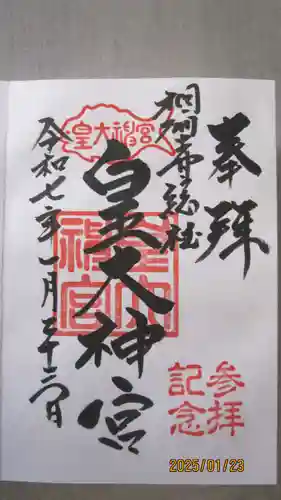 奉拝
相州二之宮総社
皇大神宮
皇大神宮
皇大神宮
令和七年一月二十三日
参拝
記念
2025/01/23